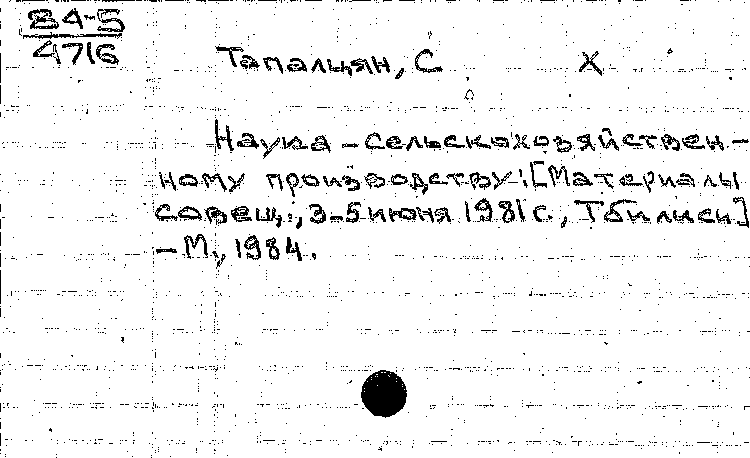 84-5
4716
Тапалцян, С х
Наука - сельскохозяйствен-
ному производству: [Материалы
совещ., 3-5 июня 1981 г., Тбилиси]
- М., 1984.